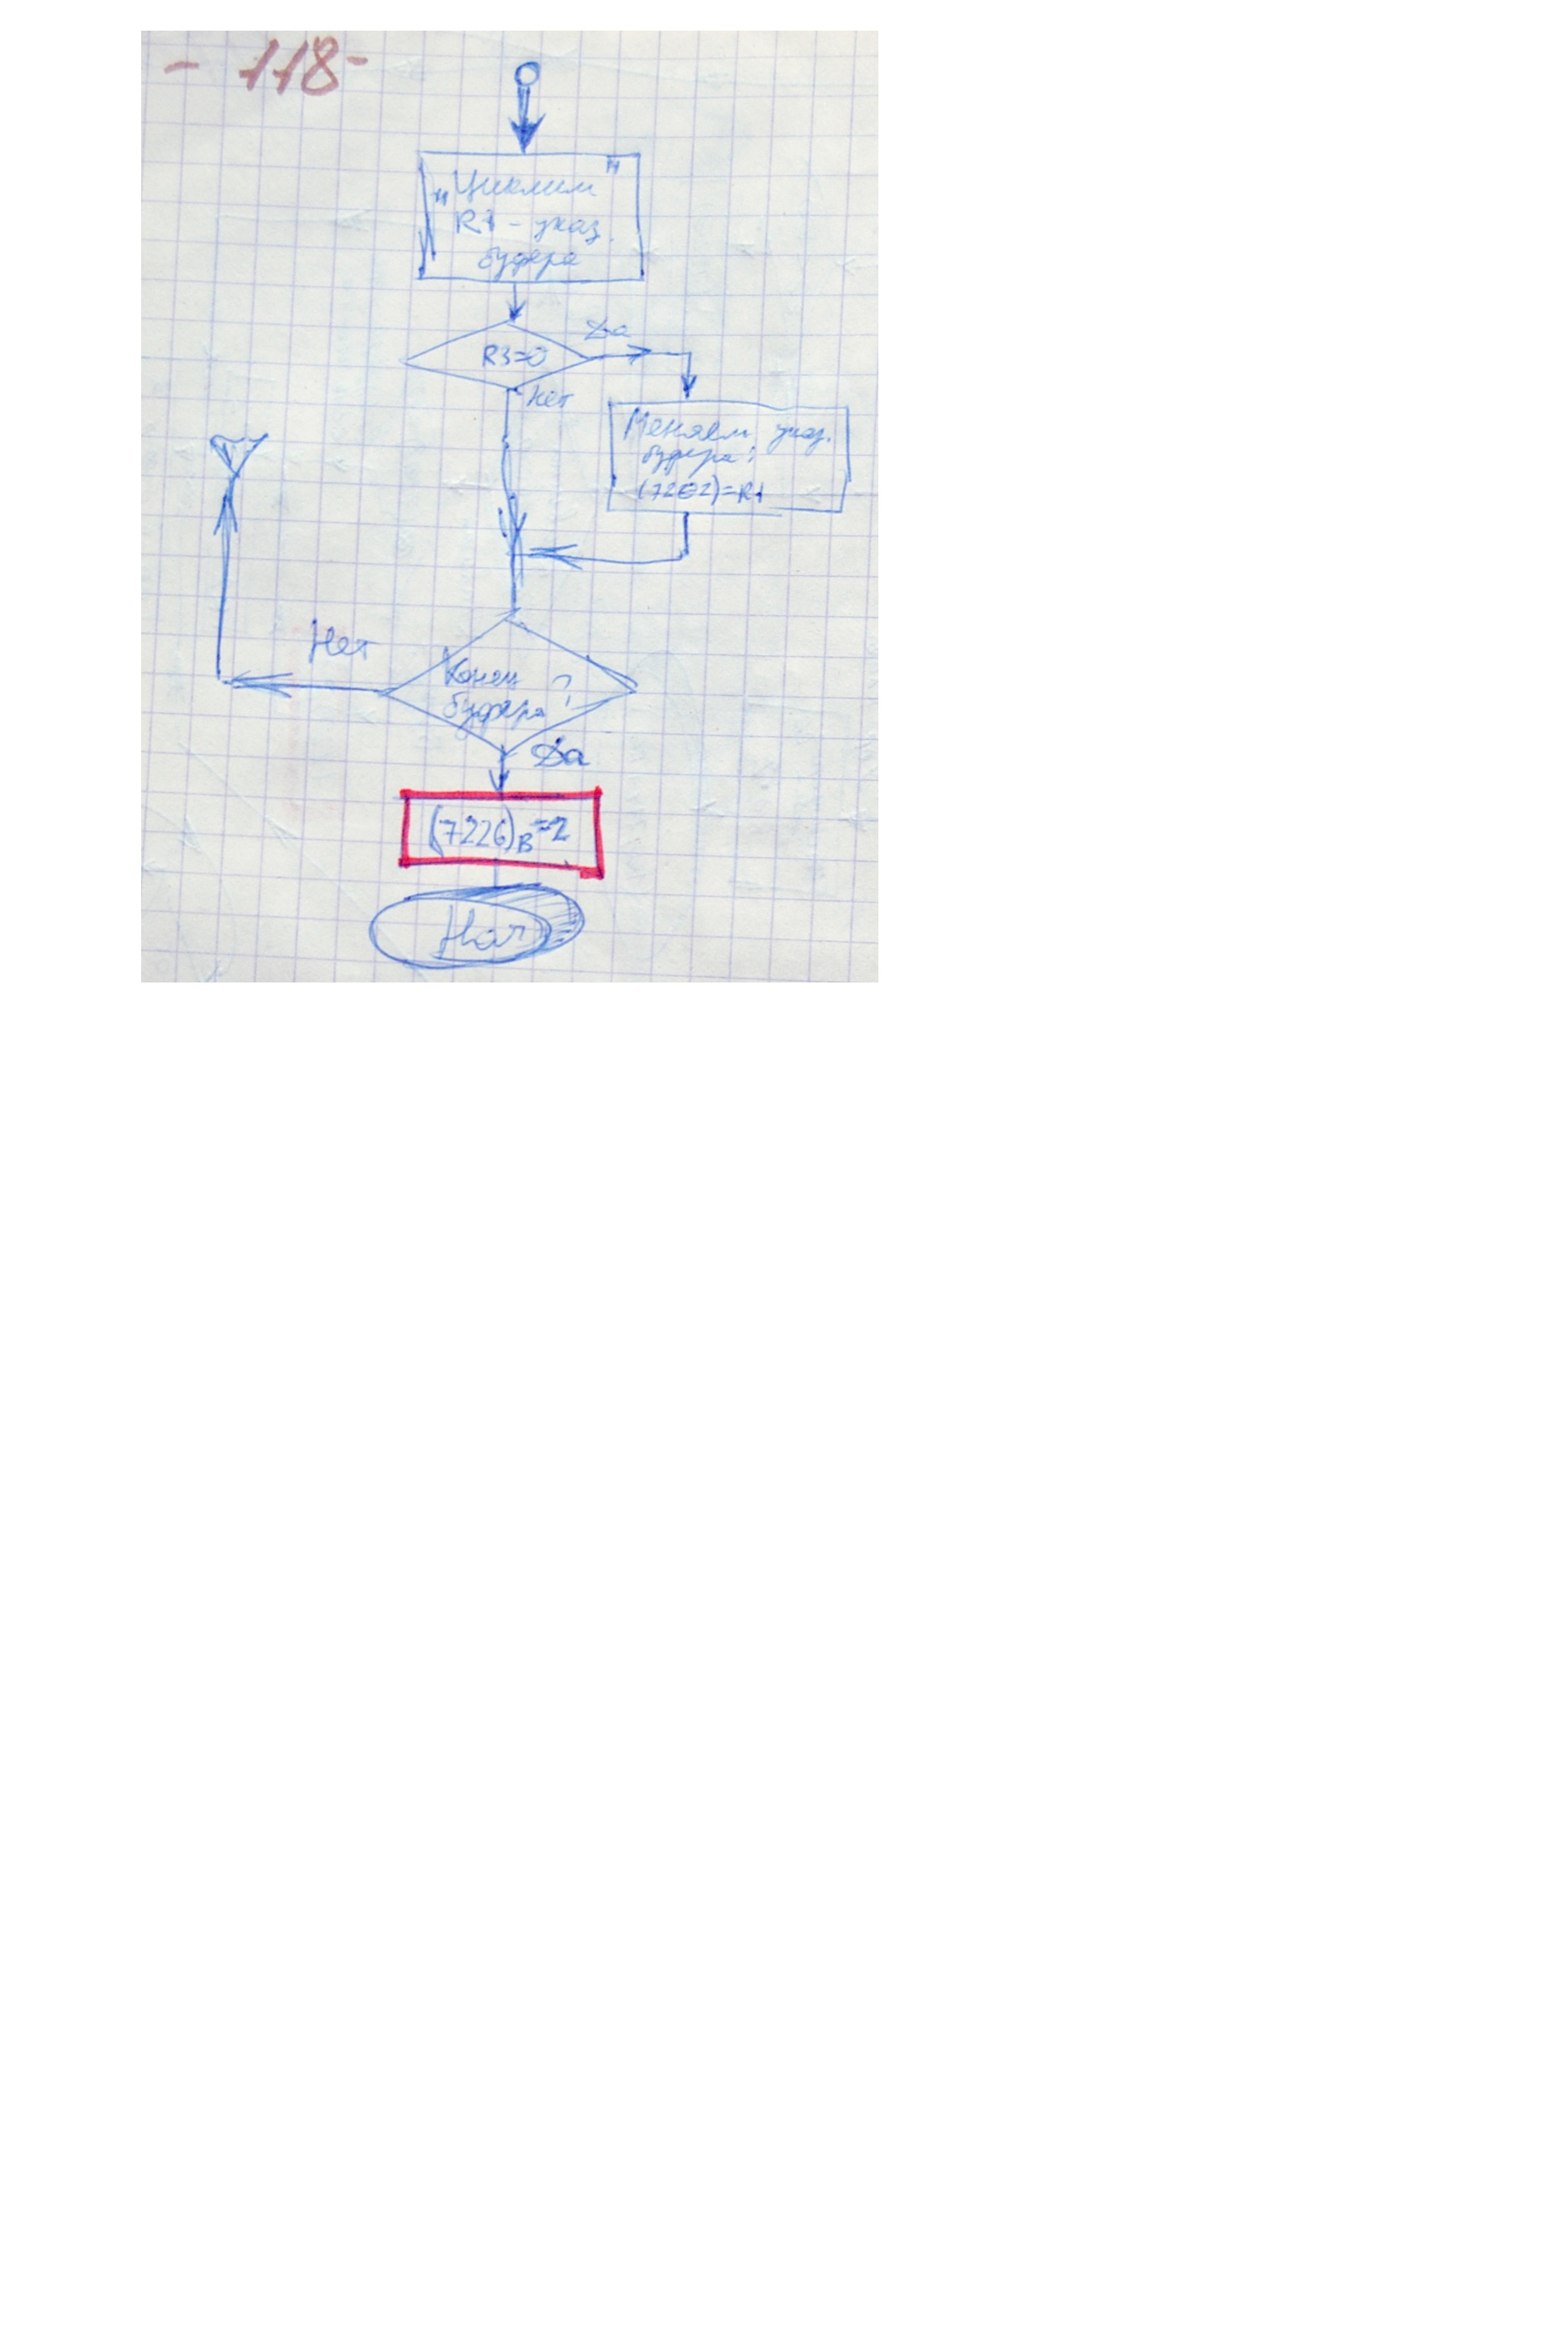 - 118 -
"Циклим"
R1 - указ.
буфера
Да
R3=0
Нет
Меняем указ.
буфера:
(7202)=R1
Нет
Конец
буфера ?
Да
(7226)в=2